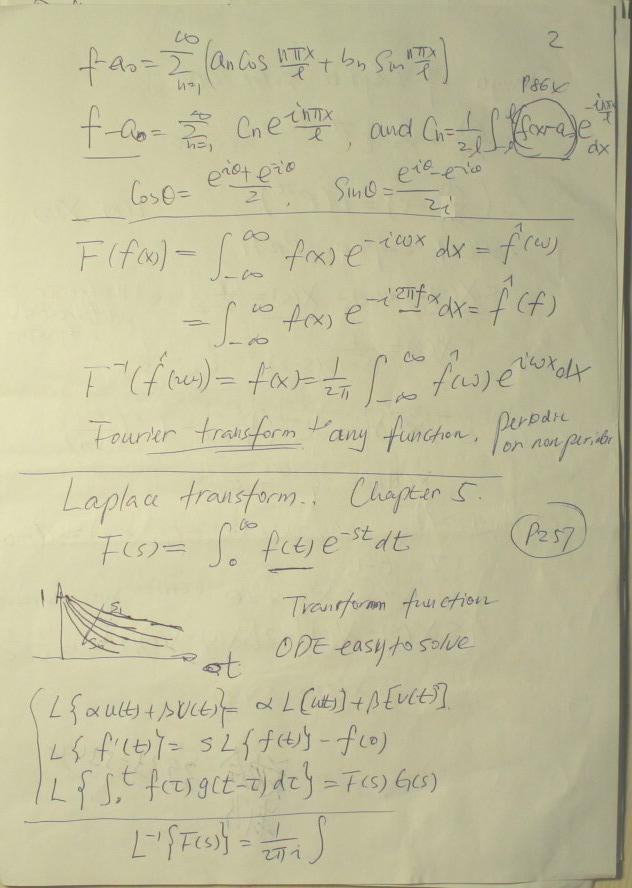 2
f-a₀ = ∑_{n=1}^{∞} (aₙ cos nπx/ℓ + bₙ Sin nπx/ℓ)
P86x
f-a₀ = ∑_{n=1}^{∞} Cₙ e^{inπx/ℓ}, and Cₙ = 1/2ℓ ∫_{-ℓ}^{ℓ} (f(x)-a₀) e^{-inπx/ℓ} dx
Cosθ = (e^{iθ} + e^{-iθ})/2, Sinθ = (e^{iθ} - e^{-iθ})/2i
F(f(x)) = ∫_{-∞}^{∞} f(x) e^{-iωx} dx = f̂(ω)
= ∫_{-∞}^{∞} f(x) e^{-i2πfx} dx = f̂(f)
F⁻¹(f̂(ω)) = f(x) = 1/2π ∫_{-∞}^{∞} f̂(ω) e^{iωx} dx
Fourier transform any function. Periodic
or nonperiodic
Laplace transform.. Chapter 5.
F(s) = ∫₀^∞ f(t) e^{-st} dt P257
1 S₁ Transform function
t ODE easy to solve
L{αu(t) + βv(t)} = αL[u(t)] + β[v(t)].
L{f'(t)} = sL{f(t)} - f(0)
L{∫₀^t f(τ) g(t-τ) dτ} = F(s) G(s)
L⁻¹{F(s)} = 1/2πi ∫